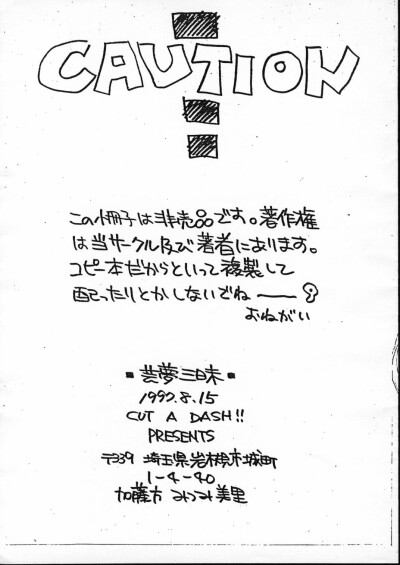 CAUTION
この小冊子は非売品です。著作権
は当サークル及び著者にあります。
コピー本だからといって複製して
配ったりとかしないでねー
おねがい
芸夢三日末
1992.8.15
CUT A DASH!!
PRESENTS
〒339 埼玉県岩槻市城町
1-4-40
加藤方 みつみ美里